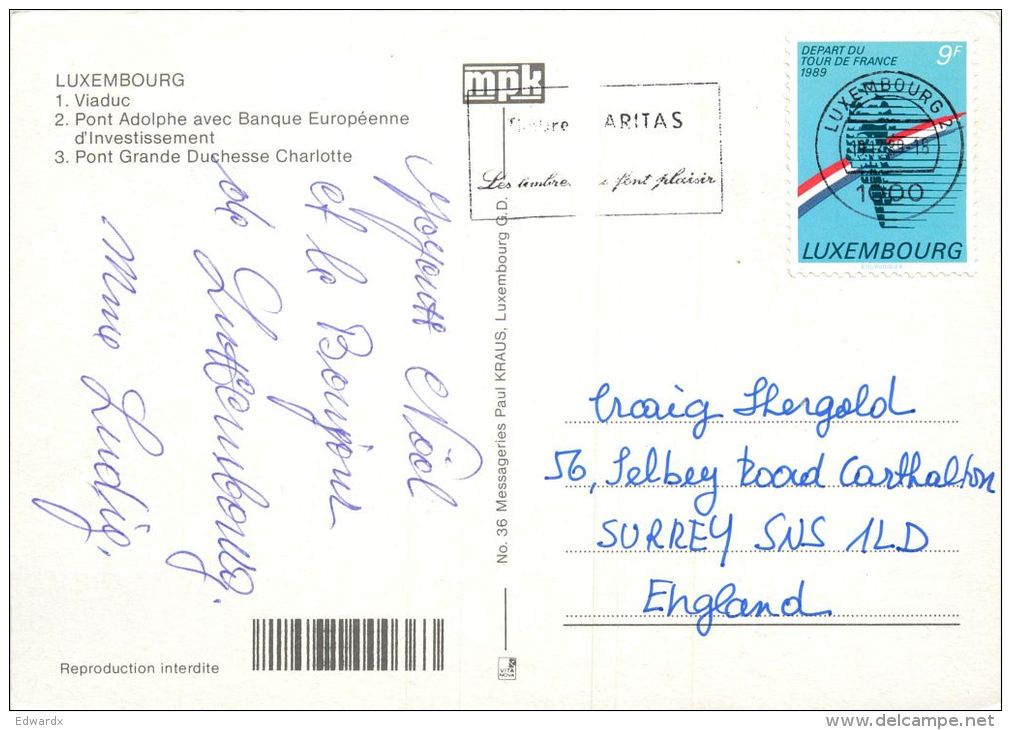 LUXEMBOURG
1. Viaduc
2. Pont Adolphe avec Banque Européenne
d'Investissement
3. Pont Grande Duchesse Charlotte
mpk
ARITAS
Les timbres font plaisir
DEPART DU
TOUR DE FRANCE
1989
9F
LUXEMBOURG 2
1000
LUXEMBOURG
COURVOISIER
Joyeux Noël
et le Bonjour
de Luxembourg.
Mme Ludig.
No. 36 Messageries Paul KRAUS, Luxembourg G.D.
Craig Shergold
56, Selbey Road Carthalton
SURREY SNS 1LD
England
Reproduction interdite
VITA
NOVA
Edwardx
delcampe.net